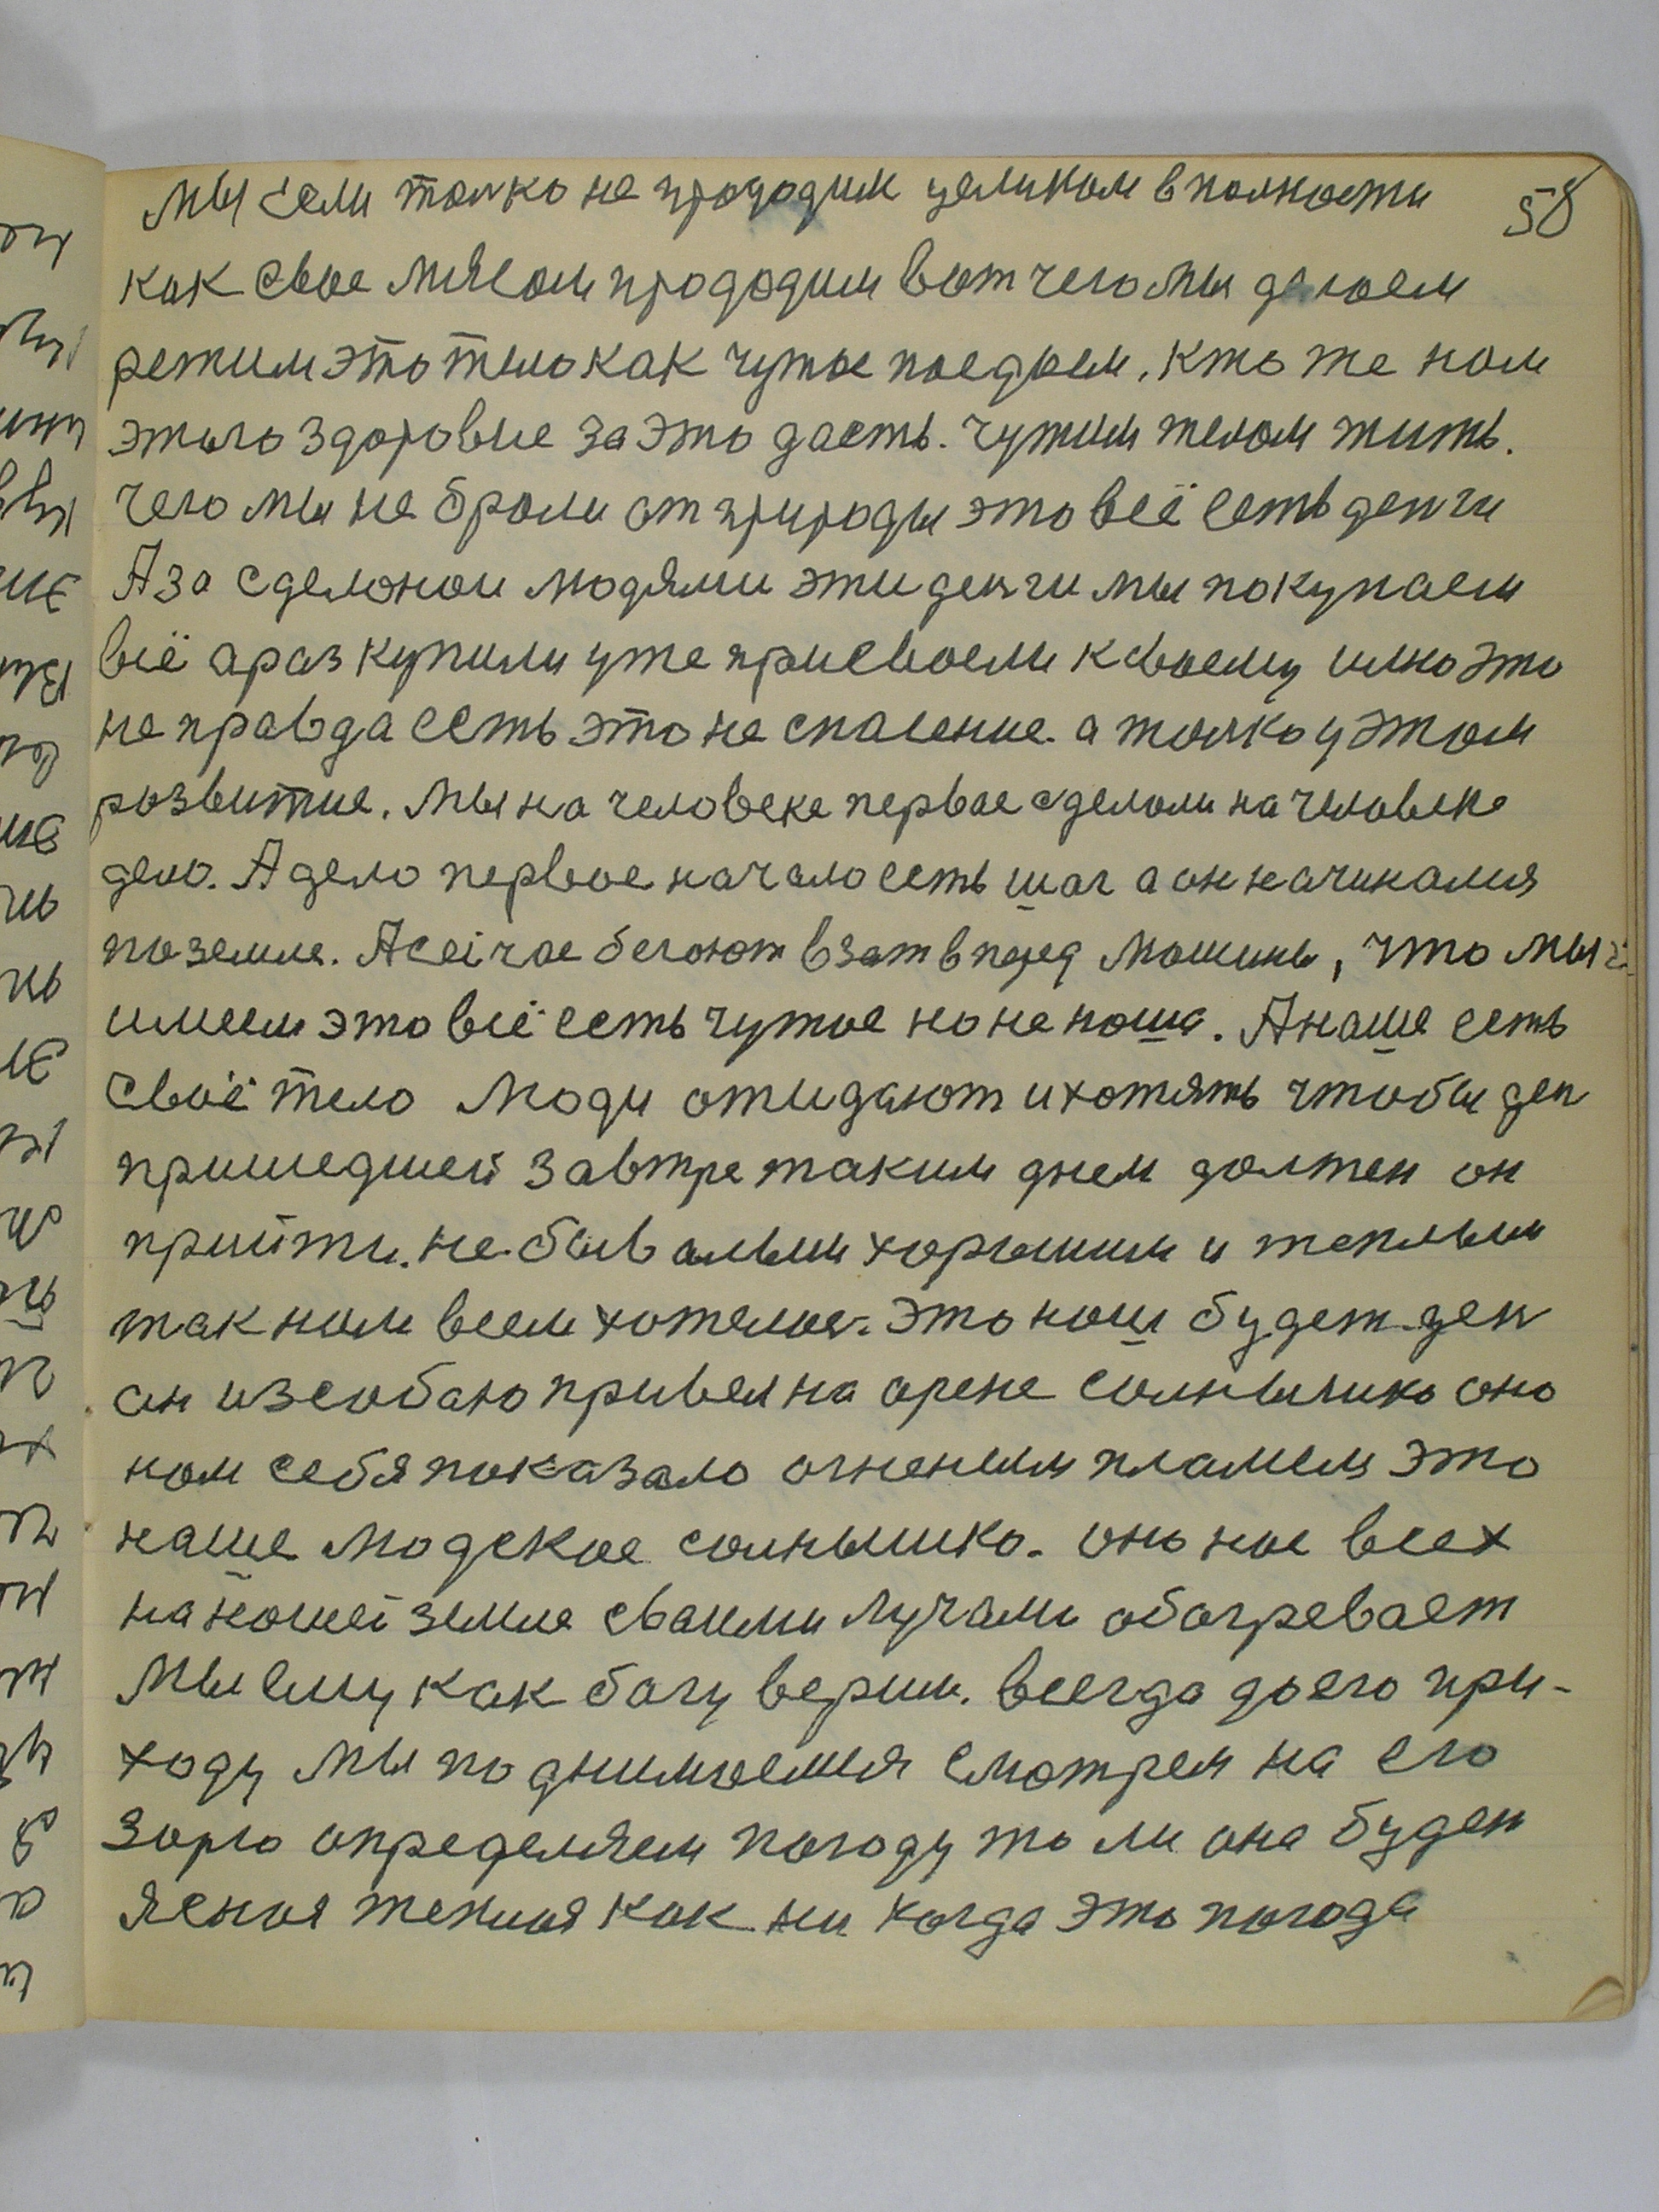 58
мы если толко не прододим целиком вполности
как свое мясом прододим вот чего мы делоем
режим это тело как чужое поедоем. кто же ном
этого здоровие за это даеть. чужим телом жить.
чего мы неброли от природы это всё есть денги
А за сделоном людями эти денги мы покупаем
всё араз купили уже присвоели к своему имю это
не правда есть это не спасение. а толко у этом
розвитие. мы на человеке первое сделоли на человеке
дело. А дело первое начало есть шаг а он начинался
по земле. А сейчас бегоют взат вперед мошины, что мы
имеем это всё есть чужое но не ноша. А наше есть
своё тело люди ожидают и хотять чтобы ден
пришедшей завтре таким днем должен он
прийти. не бывалым хорошим и теплым
так ном всем хотелос. это нош будет ден
он изсобаю привел на орене солнышко оно
ном себя показало огненым пламем это
наше людское солнышко. оно нос всех
на ношей земле своими лучами обогревает
мы ему как богу верим. всегда до его при-
ходу мы подниможмся смотрем на его
зорю определяем погоду то ли она буден
ясноя теплоя как ни когда это погода